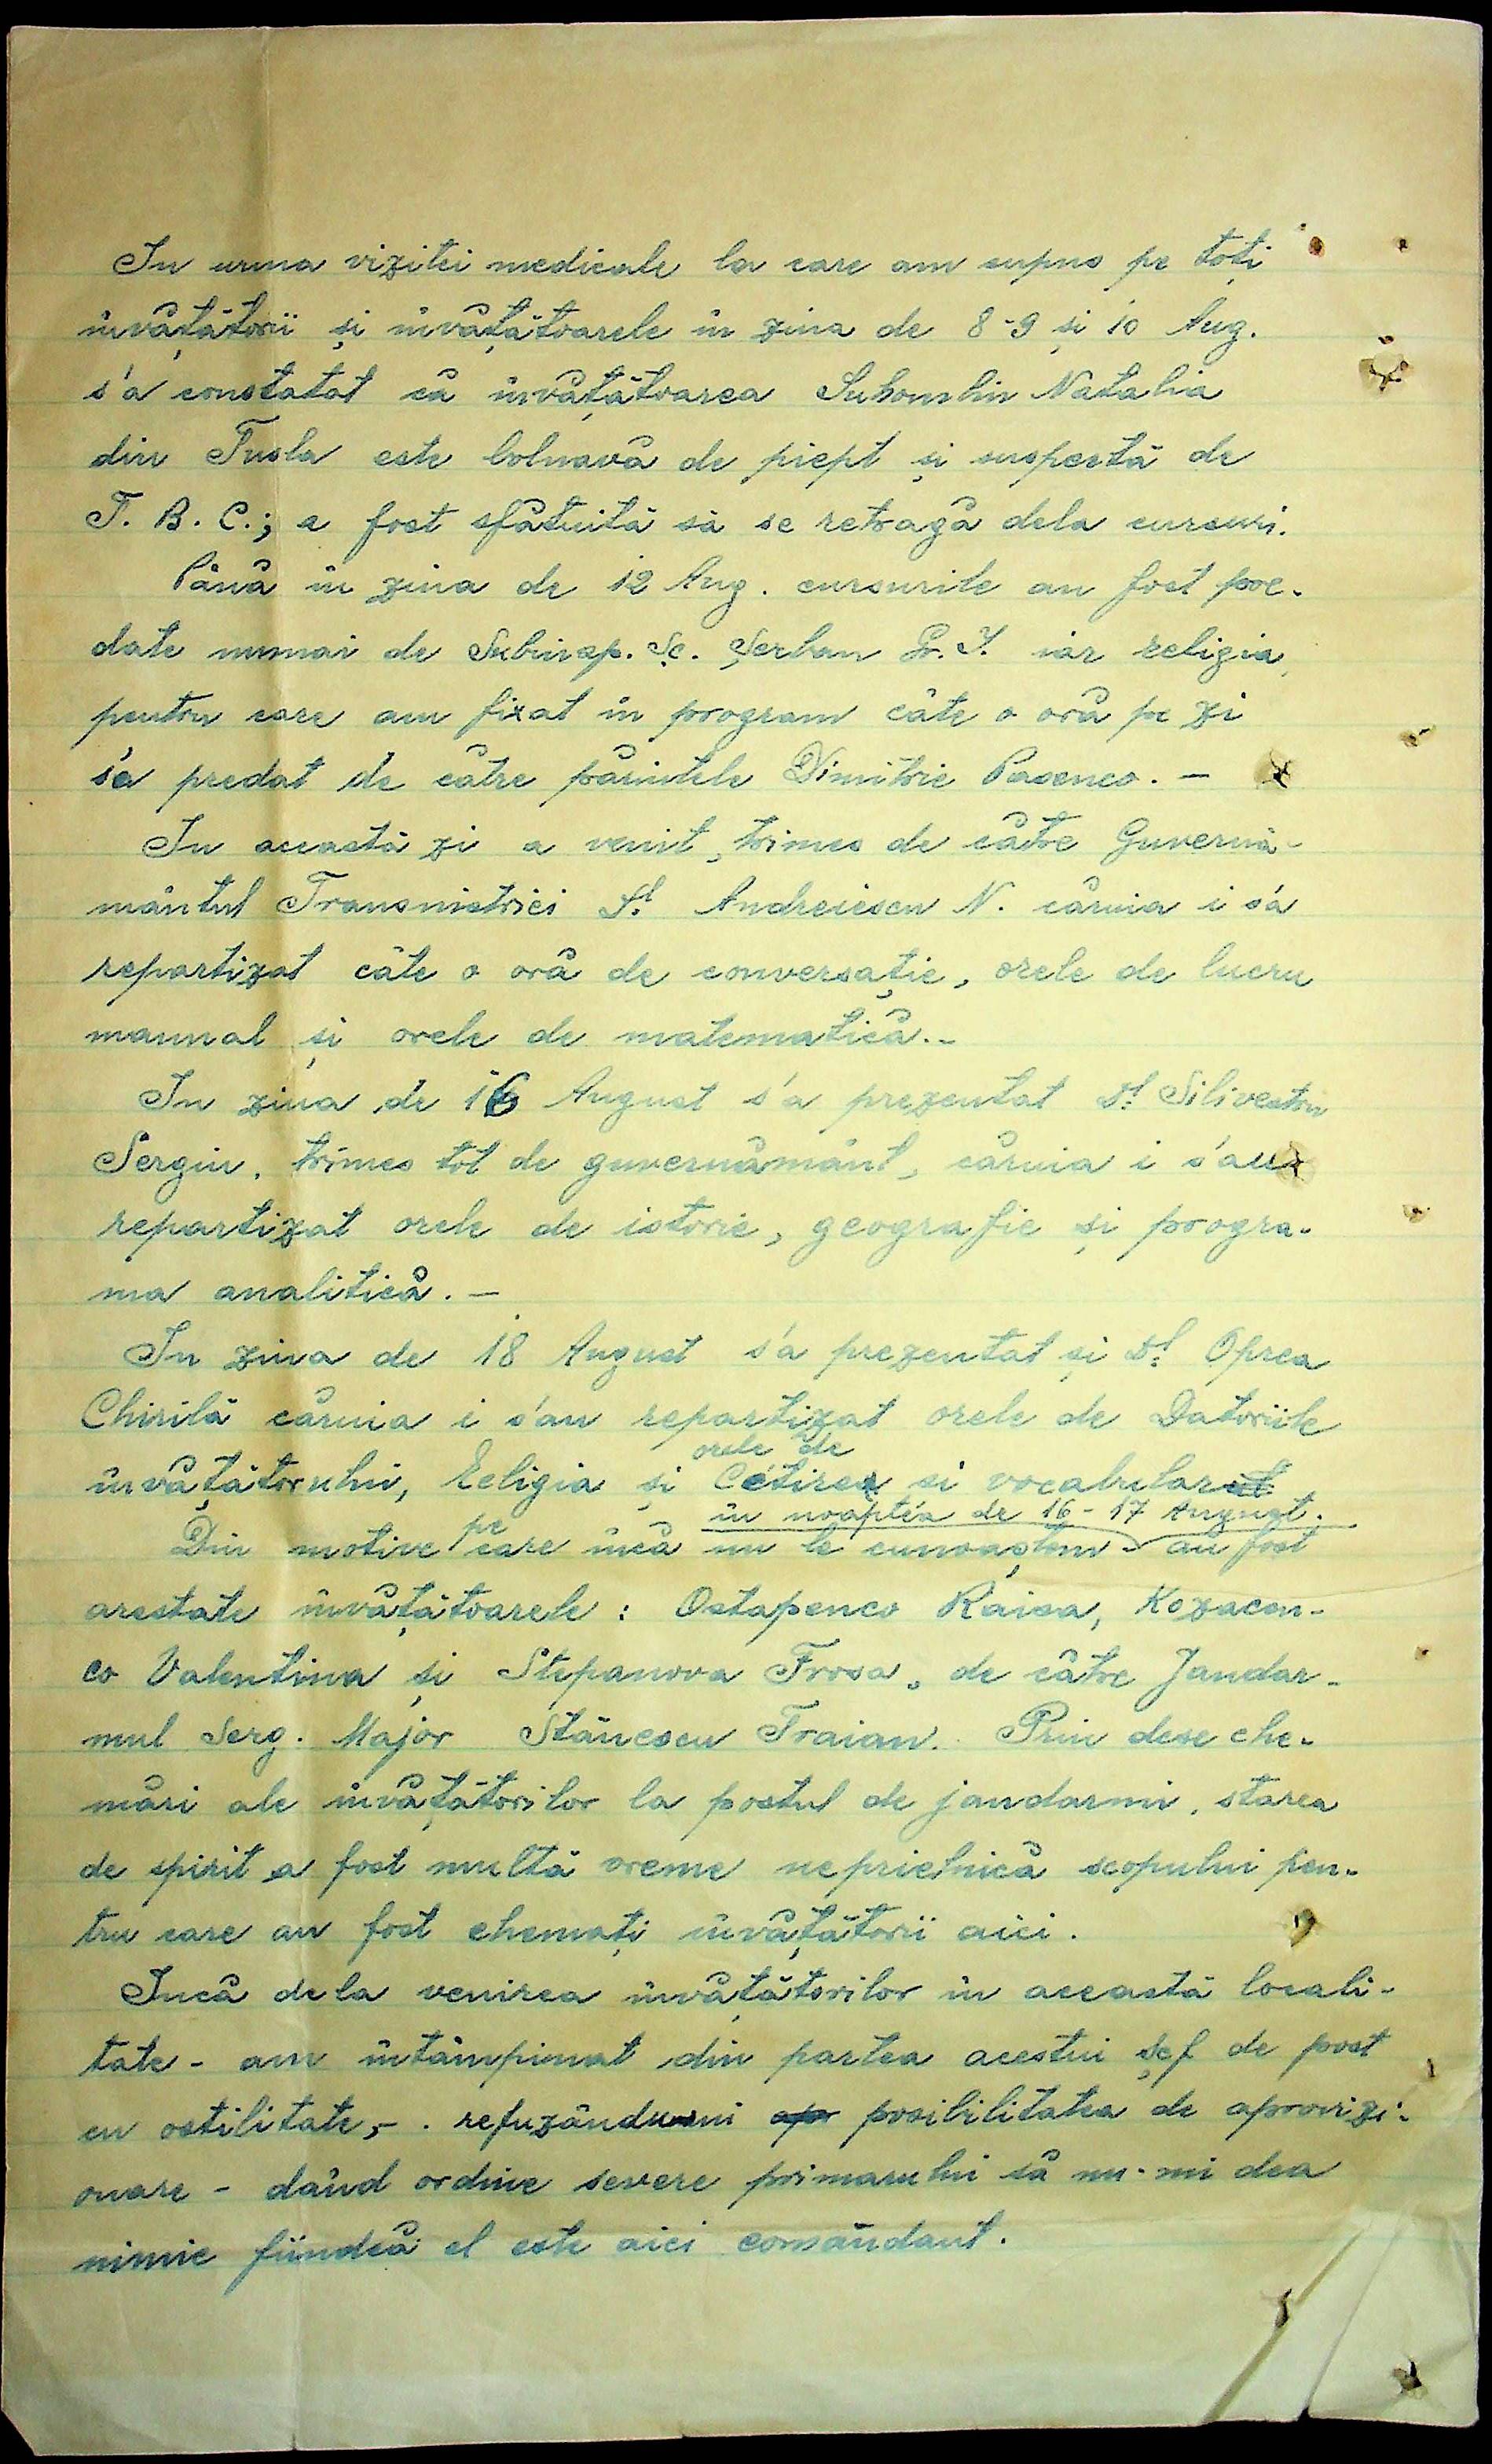 In urma vizitei medicale la care am supus pe toți
învățătorii și învățătoarele în ziua de 8-9 și 10 Aug.
s'a constatat că învățătoarea Suhomlin Natalia
din Tusla este bolnavă de piept și suspectă de
T. B. C.; a fost sfătuită să se retragă dela cursuri.
Până în ziua de 12 Aug. cursurile au fost pre-
date numai de Subinsp. Șc. Șerban Gr. I. iar religia,
pentru care am fixat în program câte o oră pe zi
s'a predat de către părintele Dimitrie Pasenco. –
In această zi a venit, trimes de către Guvernă-
mântul Transnistriei Dl. Andreiescu N. căruia i s'a
repartizat câte o oră de conversație, orele de lucru
manual și orele de matematică. –
In ziua de 16 August s'a prezentat Dl. Silivestru
Sergiu, trimes tot de guvernământ, căruia i s'au
repartizat orele de istorie, geografie și progra-
ma analitică. –
In ziua de 18 August s'a prezentat și Dl. Oprea
Chirilă căruia i s'au repartizat orele de Datoriile
orele de
învățătorului, Religia și Cetire și vocabular
în noaptea de 16 - 17 August.
pe
Din motive care încă nu le cunoaștem – au fost
arestate învățătoarele : Ostapenco Raisa, Kozacen-
co Valentina și Stepanova Frosa, de către Jandar-
mul Serg. Major Stănescu Traian. Prin dese che-
mări ale învățătorilor la postul de jandarmi, starea
de spirit a fost multă vreme neprielnică scopului pen-
tru care au fost chemați învățătorii aici.
Incă dela venirea învățătorilor în această locali-
tate - am întâmpinat din partea acestui șef de post
cu ostilitate, - refuzându-ni posibilitatea de aprovizi-
onare - dând ordine severe primarului să nu-mi dea
nimic fiindcă el este aici comandant.